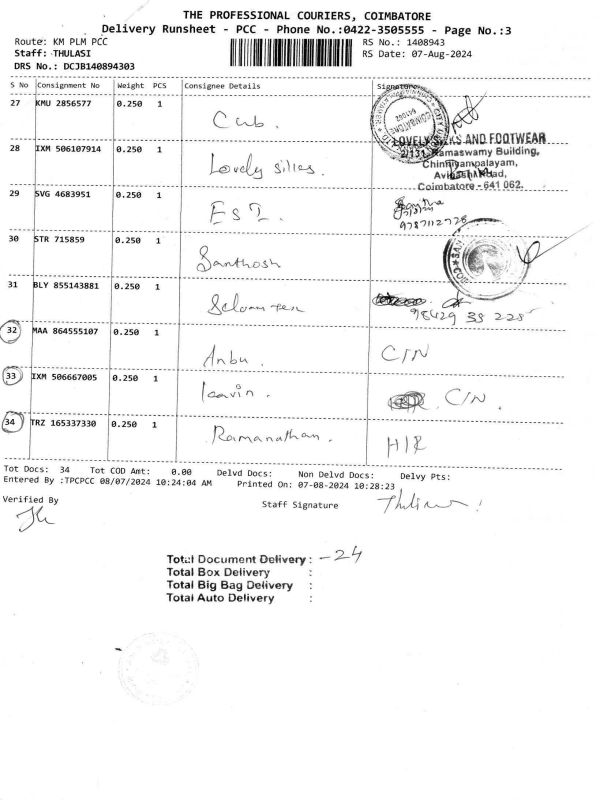 THE PROFESSIONAL COURIERS, COIMBATORE
Delivery Runsheet - PCC - Phone No.:0422-3505555 - Page No.:3
Route: KM PLM PCC RS No.: 1408943
Staff: THULASI RS Date: 07-Aug-2024
DRS No.: DCJB140894303
S No Consignment No Weight PCS Consignee Details Signature
27 KMU 2856577 0.250 1 Cub.
LOVELY SILKS AND FOOTWEAR
28 IXM 506107914 0.250 1 Lovely silks.
2/131, Ramaswamy Building,
Chinniyampalayam,
Avinashi Road,
Coimbatore - 641 062.
29 SVG 4683951 0.250 1 ESI.
9787112728
30 STR 715859 0.250 1 Santhosh
31 BLY 855143881 0.250 1
98429 38 225
32 MAA 864555107 0.250 1 Anbu. C/N
33 IXM 506667005 0.250 1 kavin. C/N.
34 TRZ 165337330 0.250 1 Ramanathan. H/R
Tot Docs: 34 Tot COD Amt: 0.00 Delvd Docs: Non Delvd Docs: Delvy Pts:
Entered By :TPCPCC 08/07/2024 10:24:04 AM Printed On: 07-08-2024 10:28:23
Verified By Staff Signature
Total Document Delivery : - 24
Total Box Delivery :
Total Big Bag Delivery :
Total Auto Delivery :